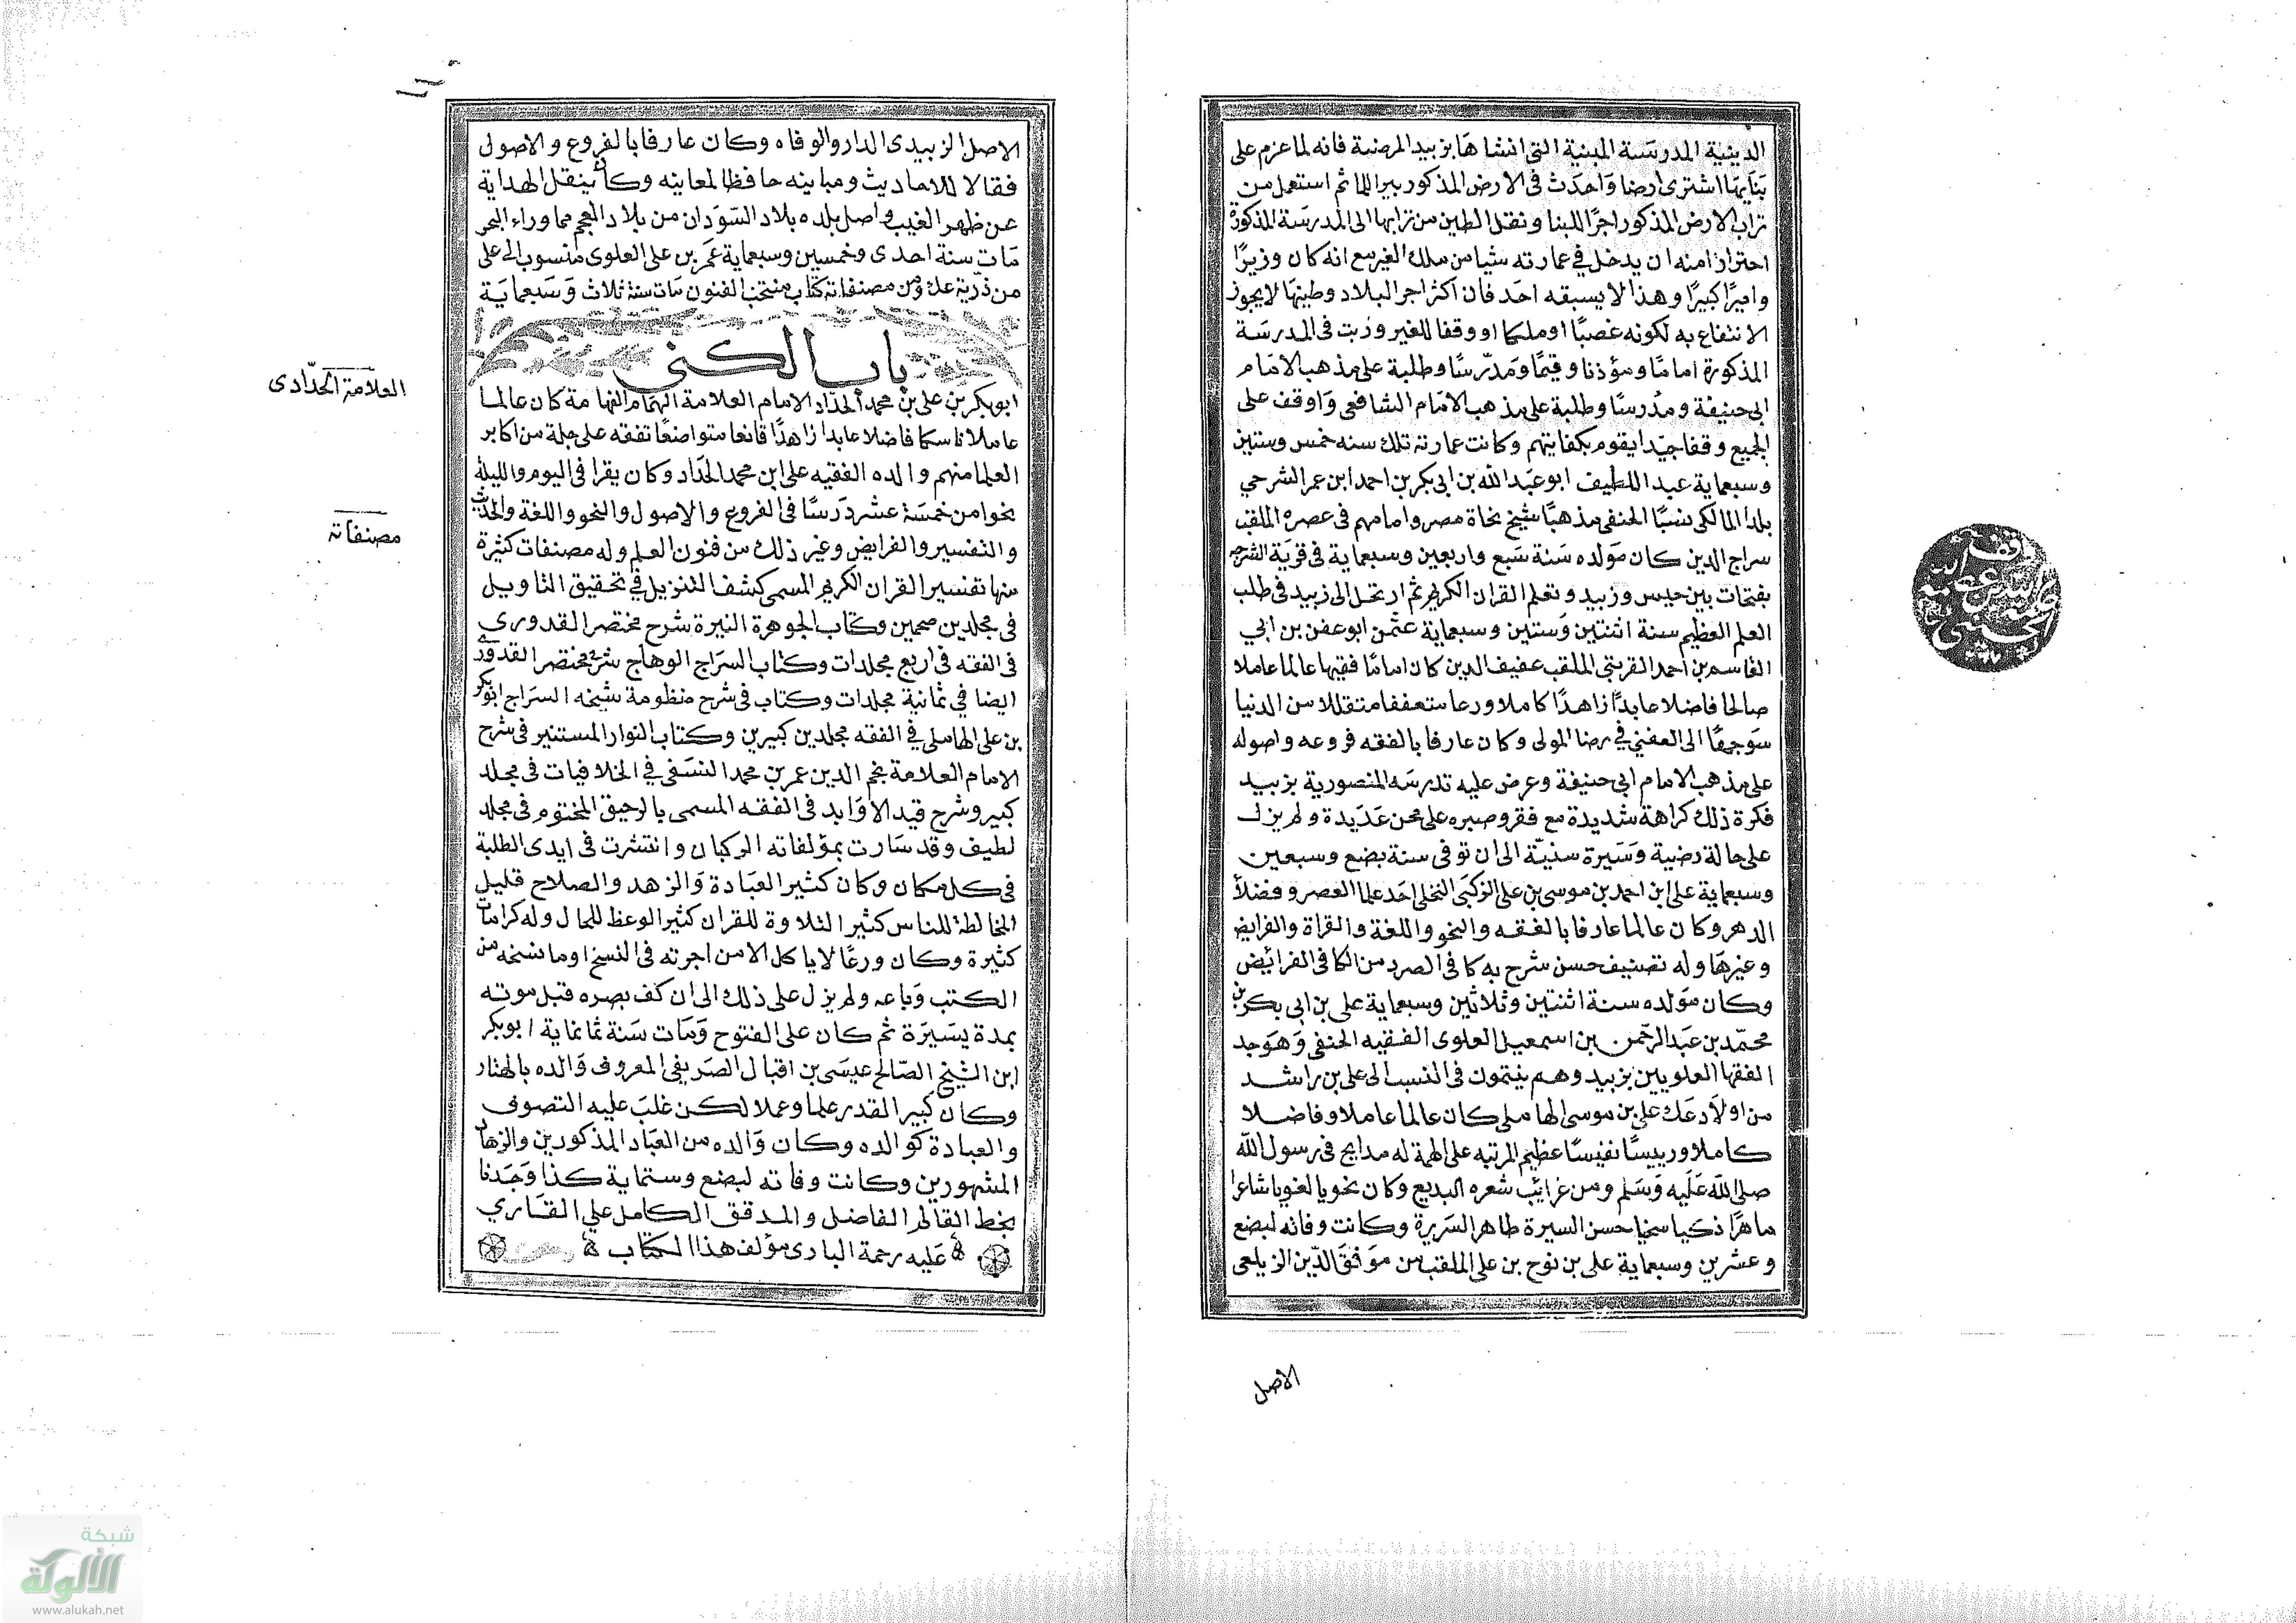 الدينية المدرسة المبنية التي انشاها بزبيد المرضية فانه لما عزم على
بنايها اشترى ارضا واحدث في الارض المذكور بير الما ثم استعمل من
تراب الارض المذكور اجر اللبنا ونقل الطين من ترابها الى المدرسة المذكورة
احترازا منه ان يدخل في عمارته شيا من ملك الغير مع انه كان وزيرًا
واميرًا كبيرًا وهذا لا يسبقه احد فان اكثر اجر البلاد وطينها لا يجوز
الانتفاع به لكونه غصبًا او ملكا او وقفا للغير ورتب في المدرسة
المذكورة امامًا ومؤذنا وقيمًا ومدرّسًا وطلبة على مذهب الامام
ابى حنيفة ومدرسًا وطلبة على مذهب الامام الشافعى واوقف على
الجميع وقفا جيّدا يقوم بكفايتهم وكانت عمارته تلك سنه خمس وستين
وسبعماية عبد اللطيف ابو عبد الله بن ابى بكر بن احمد ابن عمر الشرحي
بلدا المالكى نسبًا الحنفى مذهبًا شيخ نحاة مصر وامامهم في عصره الملقب
سراج الدين كان مولده سنة سبع واربعين وسبعماية في قرية الشرجه
بفتحات بين حيس وزبيد وتعلم القران الكريم ثم ارتحل الى زبيد في طلب
العلم العظيم سنة اثنتين وستين وسبعماية عثمن ابو عفن بن ابي
القاسم بن احمد القربتى الملقب عفيف الدين كان امامًا فقيها عالما عاملا
صالحا فاضلا عابدًا زاهدًا كاملا ورعا متعففا متقللا من الدنيا
متوجهًا الى العفني في رضا المولى وكان عارفا بالفقه فروعه واصوله
على مذهب الامام ابى حنيفة وعرض عليه تدرسه المنصورية بزبيد
فكره ذلك كراهة شديدة مع فقر وصبره على محن عديدة ولم يزل
على حالة رضية وسيرة سنيّة الى ان توفى سنة بضع وسبعين
وسبعماية على ابن احمد بن موسى بن على الركبى النخلى احد علما العصر وفضلا
الدهر وكان عالما عارفا بالفقه والنحو واللغة والقراة والفرايض
وغيرها وله تصنيف حسن شرح به كافى الصردمن الكافى الفرائيض
وكان مولده سنة اثنتين وثلاثين وسبعماية على بن ابى بكر بن
محمّد بن عبد الرحمن بن اسمعيل العلوى الفقيه الحنفى وهو جد
الفقها العلويين بزبيد وهم ينتمون في النسب الى على بن راشد
من اولاد عك على بن موسى الهاملى كان عالما عاملا وفاضلا
كاملا ورييسًا نفيسًا عظيم المرتبه على الهمة له مدايح في رسول الله
صلى الله عليه وسلم ومن غرايب شعره البديع وكان نحويا لغويا شاعرا
ماهرًا ذكيا سخيا حسن السيرة طاهر السريرة وكانت وفاته لبضع
وعشرين وسبعماية على بن نوح بن على الملقب من موفق الدّين الزيلعى
الاصل
الاصل الزبيدى الدار والوفاه وكان عارفا بالفروع والاصول
فقالا للاحاديث ومباينه حافظا لمعاينه وكان ينقل الهداية
عن ظهر الغيب واصل بلده بلاد السّودان من بلاد العجم مما وراء البحر
مات سنة احدى وخمسين وسبعماية عمر بن على العلوى منسوب الى على
من ذرّية عك ومن مصنفاته كتاب منتخب الفنون مات سنة ثلاث وسبعماية
باب الكنى
ابو بكر بن على بن محمد الحدّاد الامام العلامة الهمام الفهامة كان عالما
عاملا ناسكا فاضلا عابدا زاهدًا قانعا متواضعًا تفقه على جلة من اكابر
العلما منهم والده الفقيه على ابن محمد الحداد وكان يقرا في اليوم والليلة
نحوا من خمسة عشر درسًا في الفروع والاصول والنحو واللغة والحديث
والتفسير والفرايض وغير ذلك من فنون العلم وله مصنفات كثيرة
منها تفسير القران الكريم المسمى كشف التنزيل في تحقيق التاويل
في مجلدين ضخمين وكتاب الجوهرة النيرة شرح مختصر القدورى
في الفقه في اربع مجلدات وكتاب السراج الوهاج شرح مختصر القدورى
ايضا في ثمانية مجلدات وكتاب في شرح منظومة شيخه السراج ابو بكر
بن على الهاملى في الفقه مجلدين كبيرين وكتاب النوار المستنير في شرح
الامام العلامة نجم الدين عمر بن محمد النسفى في الخلافيات في مجلد
كبير وشرح قيد الاوابد في الفقه المسمى بالرحيق المختوم في مجلد
لطيف وقد سارت بمؤلفاته الركبان وانتشرت في ايدى الطلبة
في كل مكان وكان كثير العبادة والزهد والصلاح قليل
المخالطة للناس كثير التلاوة للقران كثير الوعظ للجال وله كرامات
كثيرة وكان ورعًا لا ياكل الا من اجرته في النسخ او ما نسخه من
الكتب وباعه ولم يزل على ذلك الى ان كف بصره قبل موته
بمدة يسيرة ثم كان على الفتوح ومات سنة ثمانماية ابو بكر
ابن الشيخ الصّالح عيسى بن اقبال الصريفى المعروف والده بالهتار
وكان كبير القدر علما وعملا لكن غلب عليه التصوف
والعبادة كوالده وكان والده من العباد المذكورين والزهاد
المشهورين وكانت وفاته لبضع وستماية كذا وجدنا
بخط القالم الفاضل والمدقق الكامل علي القاري
عليه رحمة البادى مؤلف هذا الكتاب
العلامة الحدّادى
مصنفاته
شبكة
الألوكة
www.alukah.net